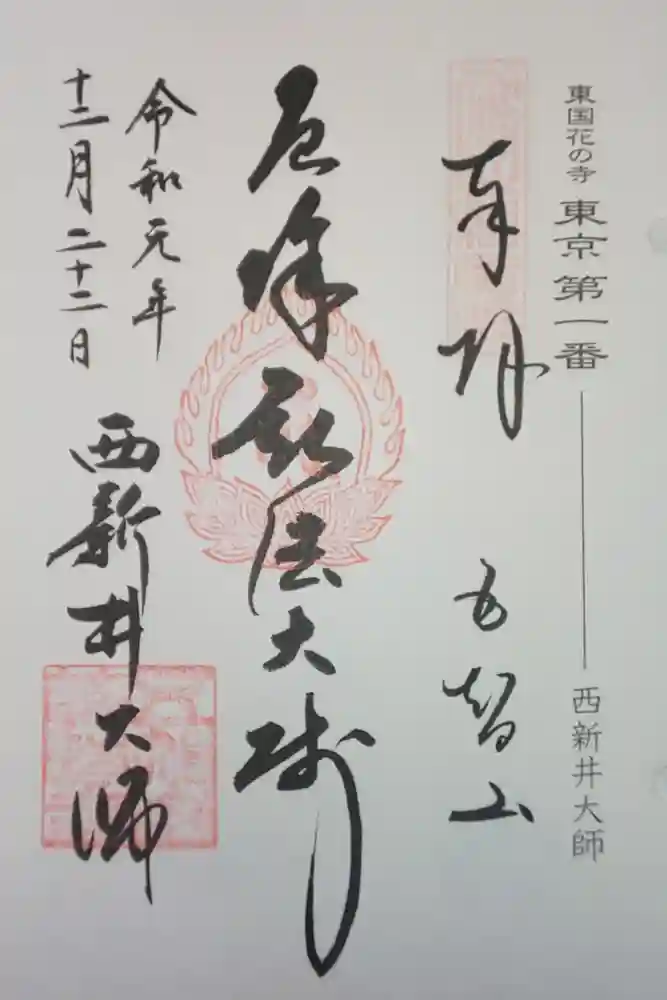 東国花の寺 東京 第一番 西新井大師
奉拝 五智山
厄除弘法大師
令和元年
十二月二十二日
西新井大師